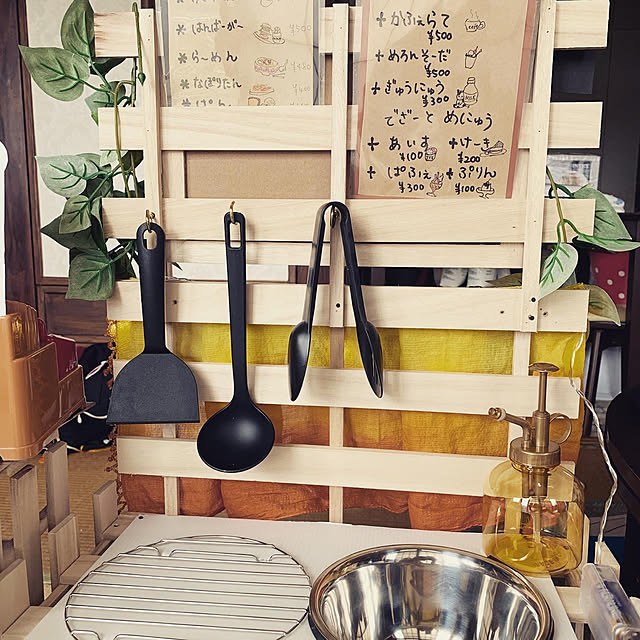 * はんばーがー
¥500
* らーめん
* なぽりたん
¥500
+ かふぇらて
¥500
+ めろんそーだ
¥500
+ ぎゅうにゅう
¥300
でざーと めにゅう
+ あいす + けーき
¥100 ¥200
+ ぱふぇ + ぷりん
¥300 ¥100